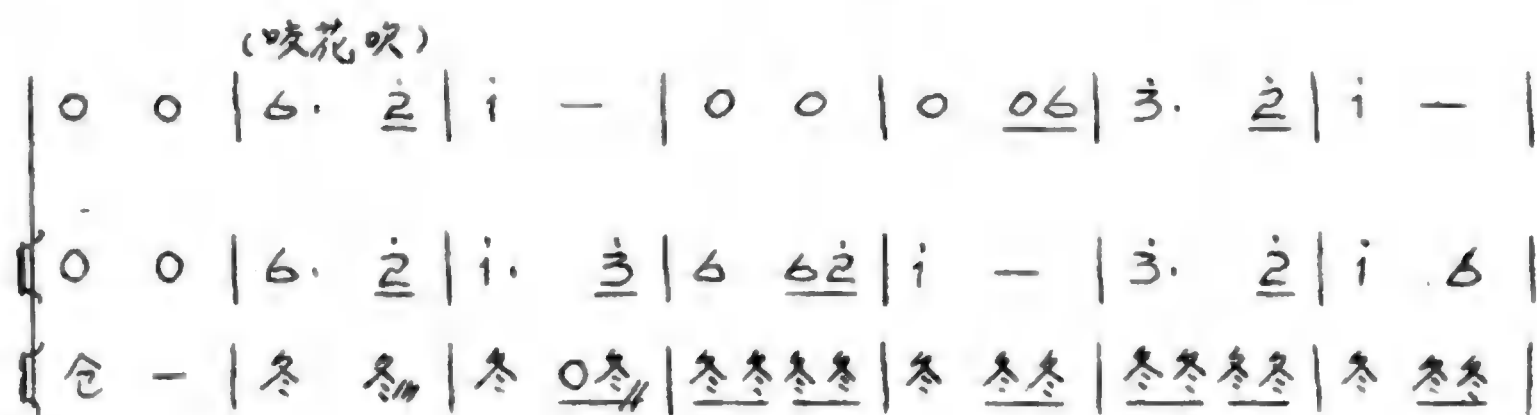 (咬花吹)
0 0 | 6· 2̇ | 1̇ — | 0 0 | 0 06 | 3̇· 2̇ | 1̇ — |
0 0 | 6· 2̇ | 1̇· 3̇ | 6 62̇ | 1̇ — | 3̇· 2̇ | 1̇ 6 |
仓 — | 冬 冬 | 冬 0冬 | 冬冬 冬冬 | 冬 冬冬 | 冬冬 冬冬 | 冬 冬冬 |